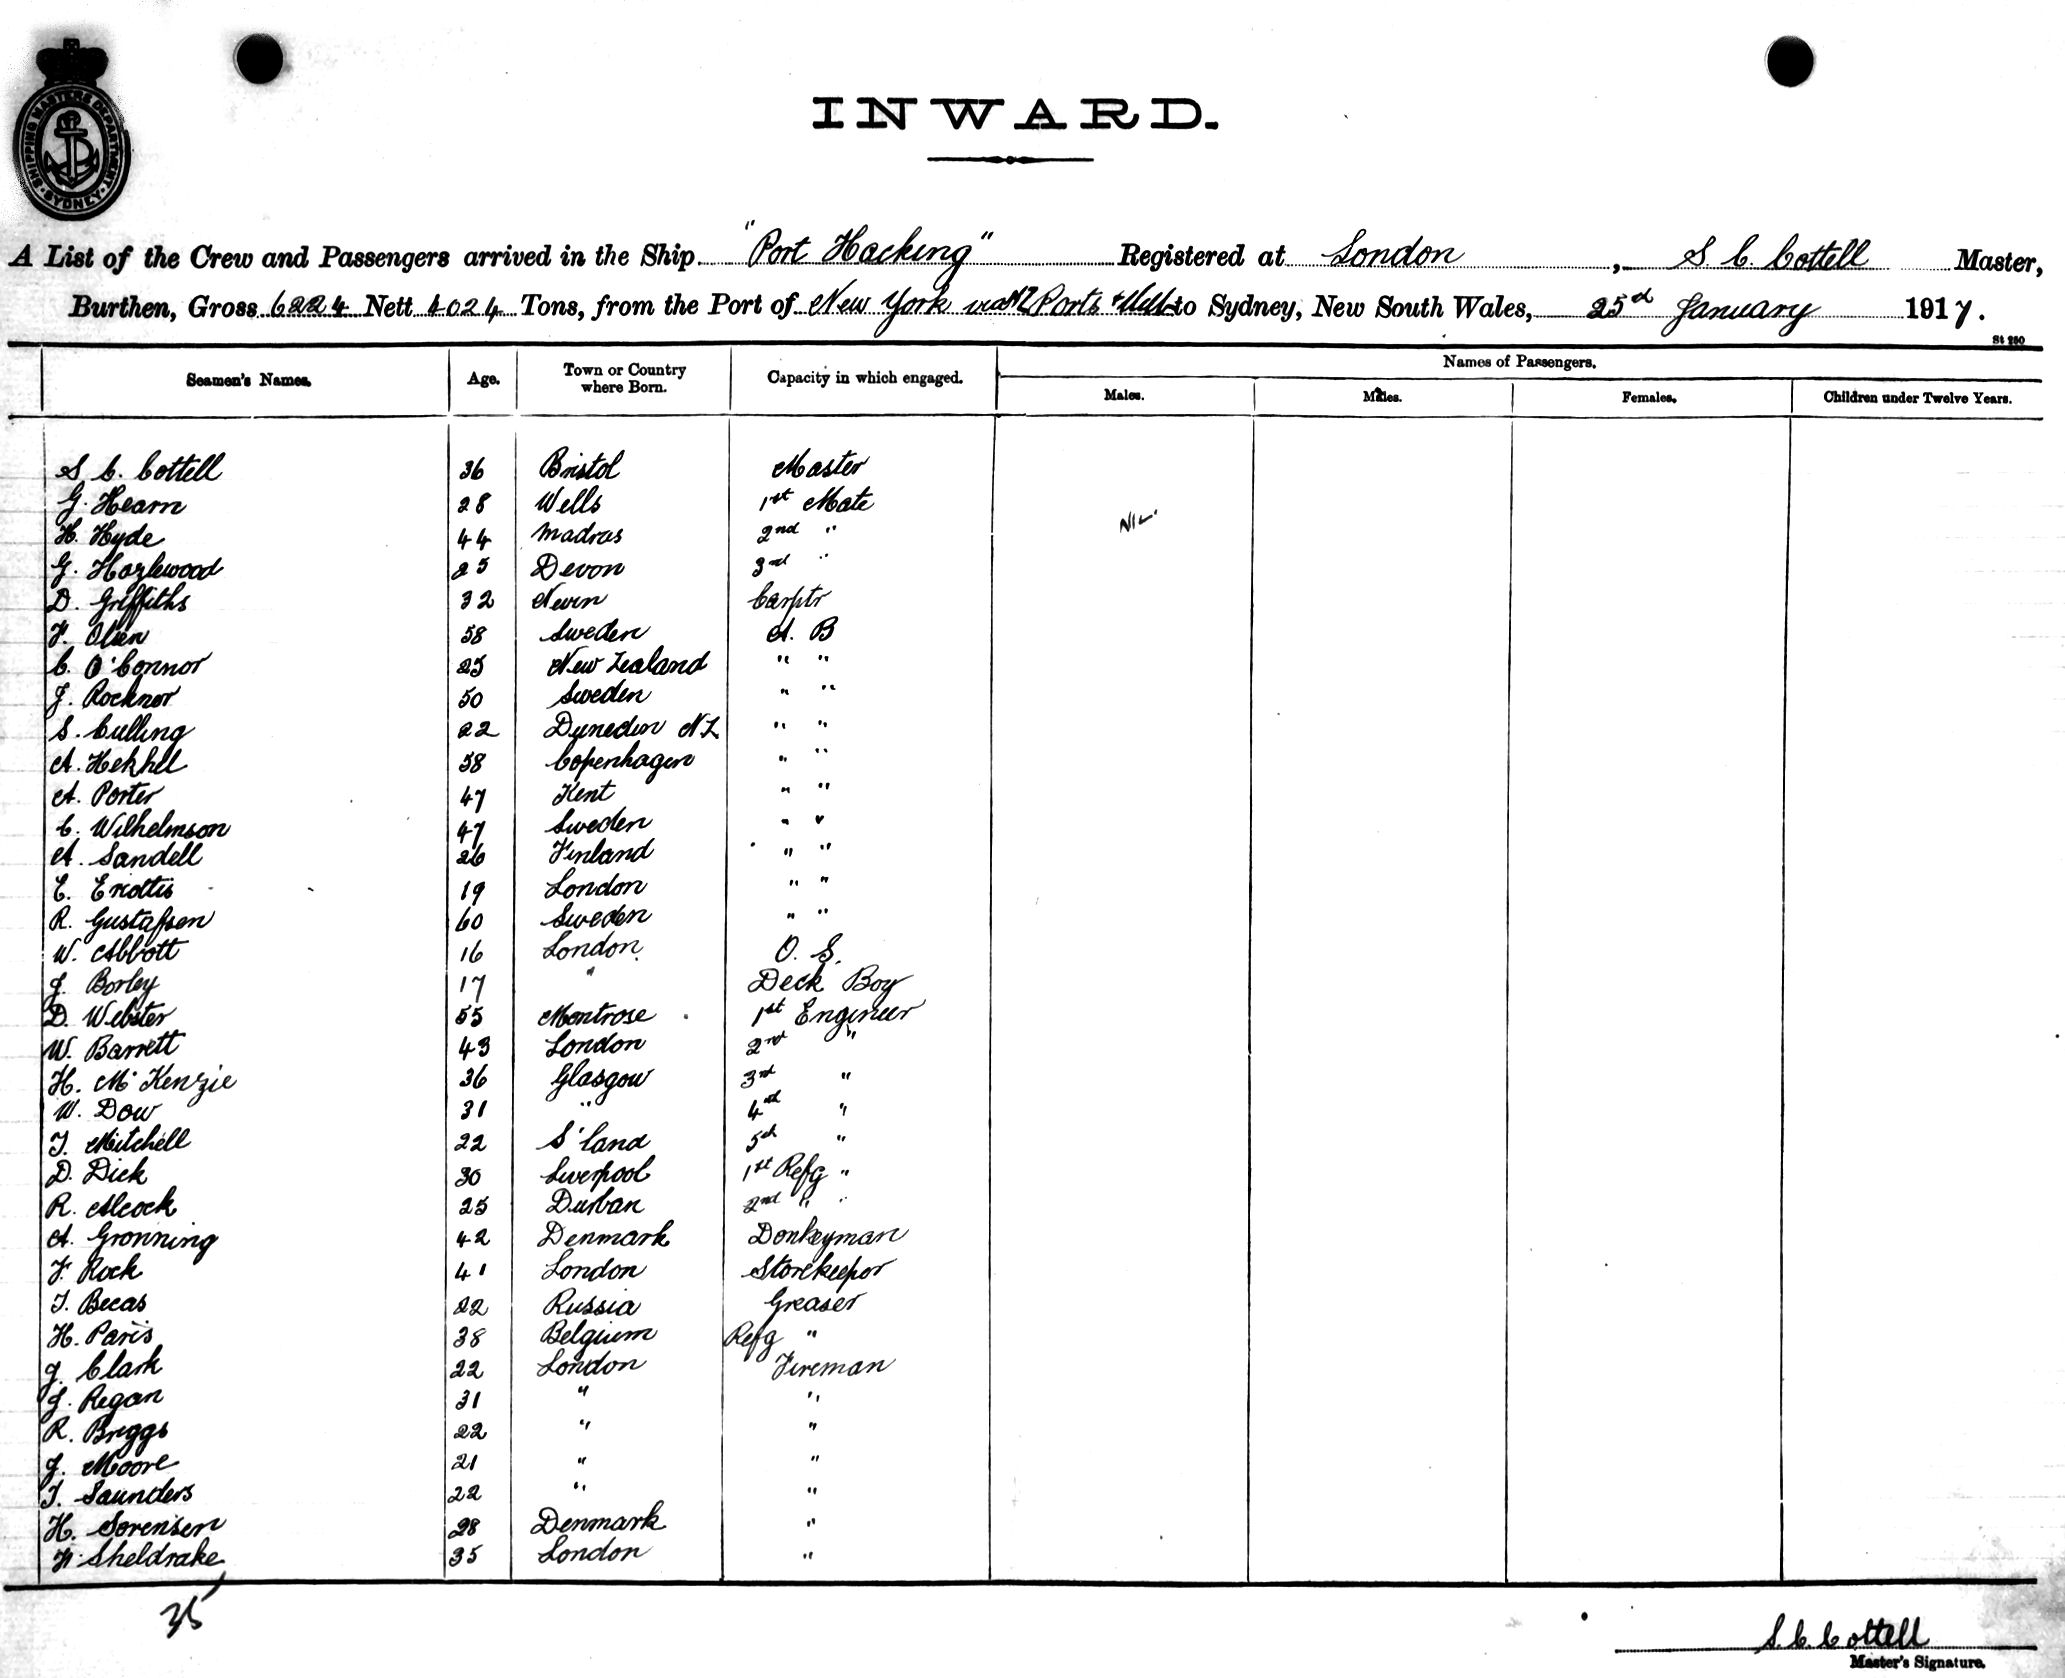 SHIPPING MASTERS DEPARTMENT SYDNEY
INWARD.
A List of the Crew and Passengers arrived in the Ship "Port Hacking" Registered at London, S. C. Cottell Master,
Burthen, Gross 6224 Nett 4024 Tons, from the Port of New York via NZ Ports & to Sydney, New South Wales, 25th January 1917.
St 260
Seamen's Names. Age. Town or Country where Born. Capacity in which engaged. Names of Passengers.
Males. Males. Females. Children under Twelve Years.
S. C. Cottell 36 Bristol Master
G. Hearn 28 Wells 1st Mate
NIL.
H. Hyde 44 Madras 2nd "
G. Hazlewood 25 Devon 3rd "
D. Griffiths 32 Nevin Carptr
F. Olsen 58 Sweden A. B
C. O'Connor 25 New Zealand " "
J. Rocknor 50 Sweden " "
S. Culling 22 Dunedin NZ " "
A. Hekhel 58 Copenhagen " "
A. Porter 47 Kent " "
C. Wilhelmson 47 Sweden " "
A. Sandell 26 Finland " "
E. 19 London " "
R. Gustafsen 60 Sweden " "
W. Abbott 16 London. O. S.
J. Borley 17 " Deck Boy
D. Webster 55 Montrose 1st Engineer
W. Barrett 43 London 2nd "
H. McKenzie 36 Glasgow 3rd "
W. Dow 31 " 4th "
T. Mitchell 22 S'land 5th "
D. Dick 30 Liverpool 1st Refg "
R. Alcock 25 Durban 2nd " "
A. Gronning 42 Denmark Donkeyman
F. Rock 41 London Storekeeper
T. Becas 22 Russia Greaser
H. Paris 38 Belgium Refg "
J. Clark 22 London Fireman
J. Regan 31 " "
R. Briggs 22 " "
J. Moore 21 " "
T. Saunders 22 " "
H. Sorensen 28 Denmark "
F. Sheldrake 35 London "
35
S. C. Cottell
Master's Signature.